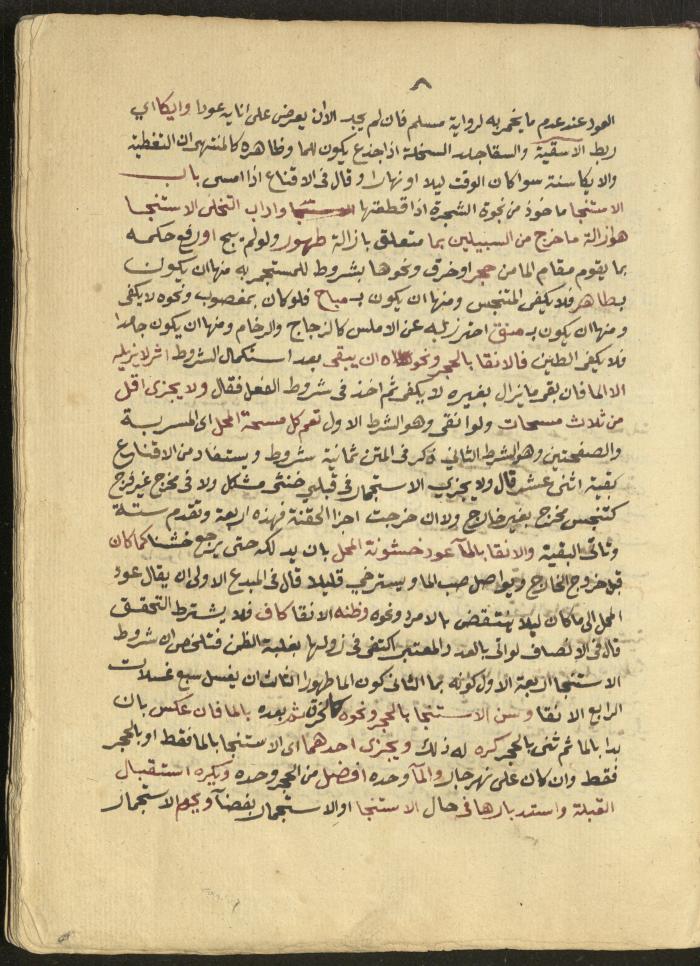 ٨
العود عند عدم ما يخمر به لرواية مسلم فان لم يجد الا ان يعرض على انايه عودا وايكا اي
ربط الاسقية والسقا جلد السخلة اذا جذع يكون للما وظاهره كالمنتهى ان التغطية
والايكا سنة سوا كان الوقت ليلا او نهارا وقال في الاقناع اذا امسى باب
الاستنجا ماخوذ من نجوة الشجرة اذا قطعتها واداب التخلي الاستنجا
هو ازالة ما خرج من السبيلين بما متعلق بازالة طهور ولو لم يبح او رفع حكمه
بما يقوم مقام الما من حجر او خرق ونحوها بشروط للمستجمر به منها ان يكون
بطاهر فلا يكفي المتنجس ومنها ان يكون بـ مباح فلو كان بمغصوب ونحوه لا يكفي
ومنها ان يكون بـ منق احترز به عن الاملس كالزجاج والرخام ومنها ان يكون جامدا
فلا يكفي الطين فالانقا بالحجر ونحوه ان يبقى بعد استكمال الشروط اثر لا يزيله
الا الما فان بقي ما يزال بغيره لا يكفي ثم اخذ في شروط الفعل فقال ولا يجزي اقل
من ثلاث مسحات ولو انقى وهو الشرط الاول تعم كل مسحة المحل اي المسربة
والصفحتين وهو الشرط الثاني ذكر في المتن ثمانية شروط ويستفاد من الاقناع
بقية اثنى عشر قال ولا يجزي الاستجمار في قبلي خنثى مشكل ولا في مخرج غير فرج
كتنجس مخرج بغير خارج ولا ان خرجت اجزا الحقنة فهذه اربعة وتقدم ستة
وتاتي البقية والانقا بالما عود خشونة المحل بان يدلكه حتى يرجع خشنا كما كان
قبل خروج الخارج ويواصل صب الما ويسترخي قليلا قال في المبدع الاولى ان يقال عود
المحل الى ما كان ليلا ينتقض بالامرد ونحوه وظنه الانقا كاف فلا يشترط التحقق
قال في الانصاف لو اتى بالعدد المعتبر اكتفي في زوالها بغلبة الظن فتلخص ان شروط
الاستنجا اربعة الاول كونه بما الثاني كون الما طهورا الثالث ان يغسل سبع غسلات
الرابع الانقا وسن الاستنجا بالحجر ونحوه كالخرق ثم بعده بالما فان عكس بان
بدا بالما ثم ثنى بالحجر كره له ذلك ويجزي احدهما اي الاستنجا بالما فقط او بالحجر
فقط وان كان على نهر جار والما وحده افضل من الحجر وحده ويكره استقبال
القبلة واستدبارها في حال الاستنجا او الاستجمار بفضا ويحرم الاستجمار